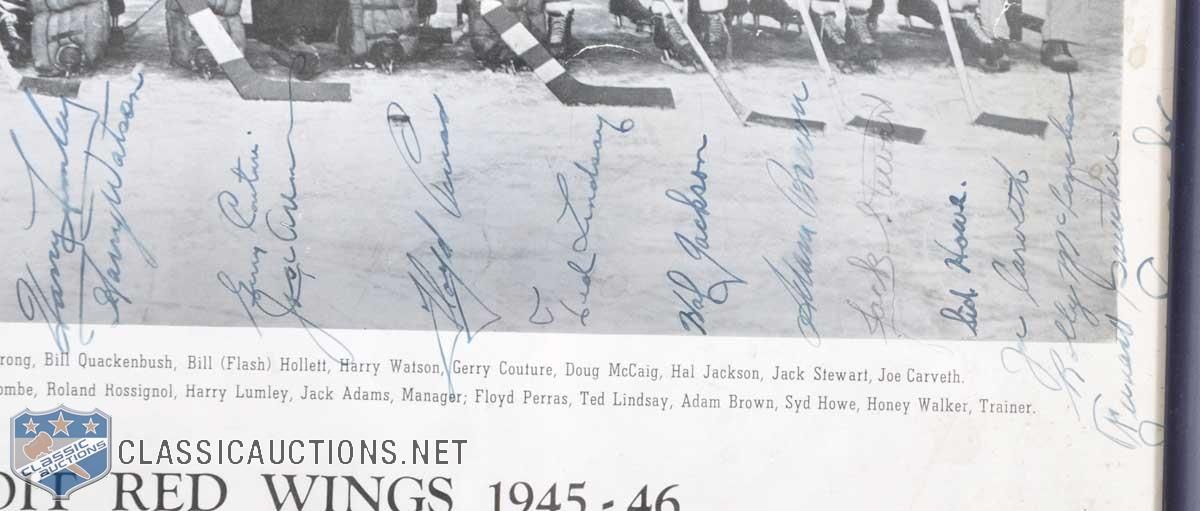 Harry Lumley
Harry Watson
Gerry Couture
Jack Adams
Floyd Perras
Ted Lindsay
Hal Jackson
Adam Brown
Jack Stewart
Syd Howe.
Joe Carveth
rong, Bill Quackenbush, Bill (Flash) Hollett, Harry Watson, Gerry Couture, Doug McCaig, Hal Jackson, Jack Stewart, Joe Carveth.
ombe, Roland Rossignol, Harry Lumley, Jack Adams, Manager; Floyd Perras, Ted Lindsay, Adam Brown, Syd Howe, Honey Walker, Trainer.
CLASSIC AUCTIONS
CLASSICAUCTIONS.NET
OIT RED WINGS 1945-46